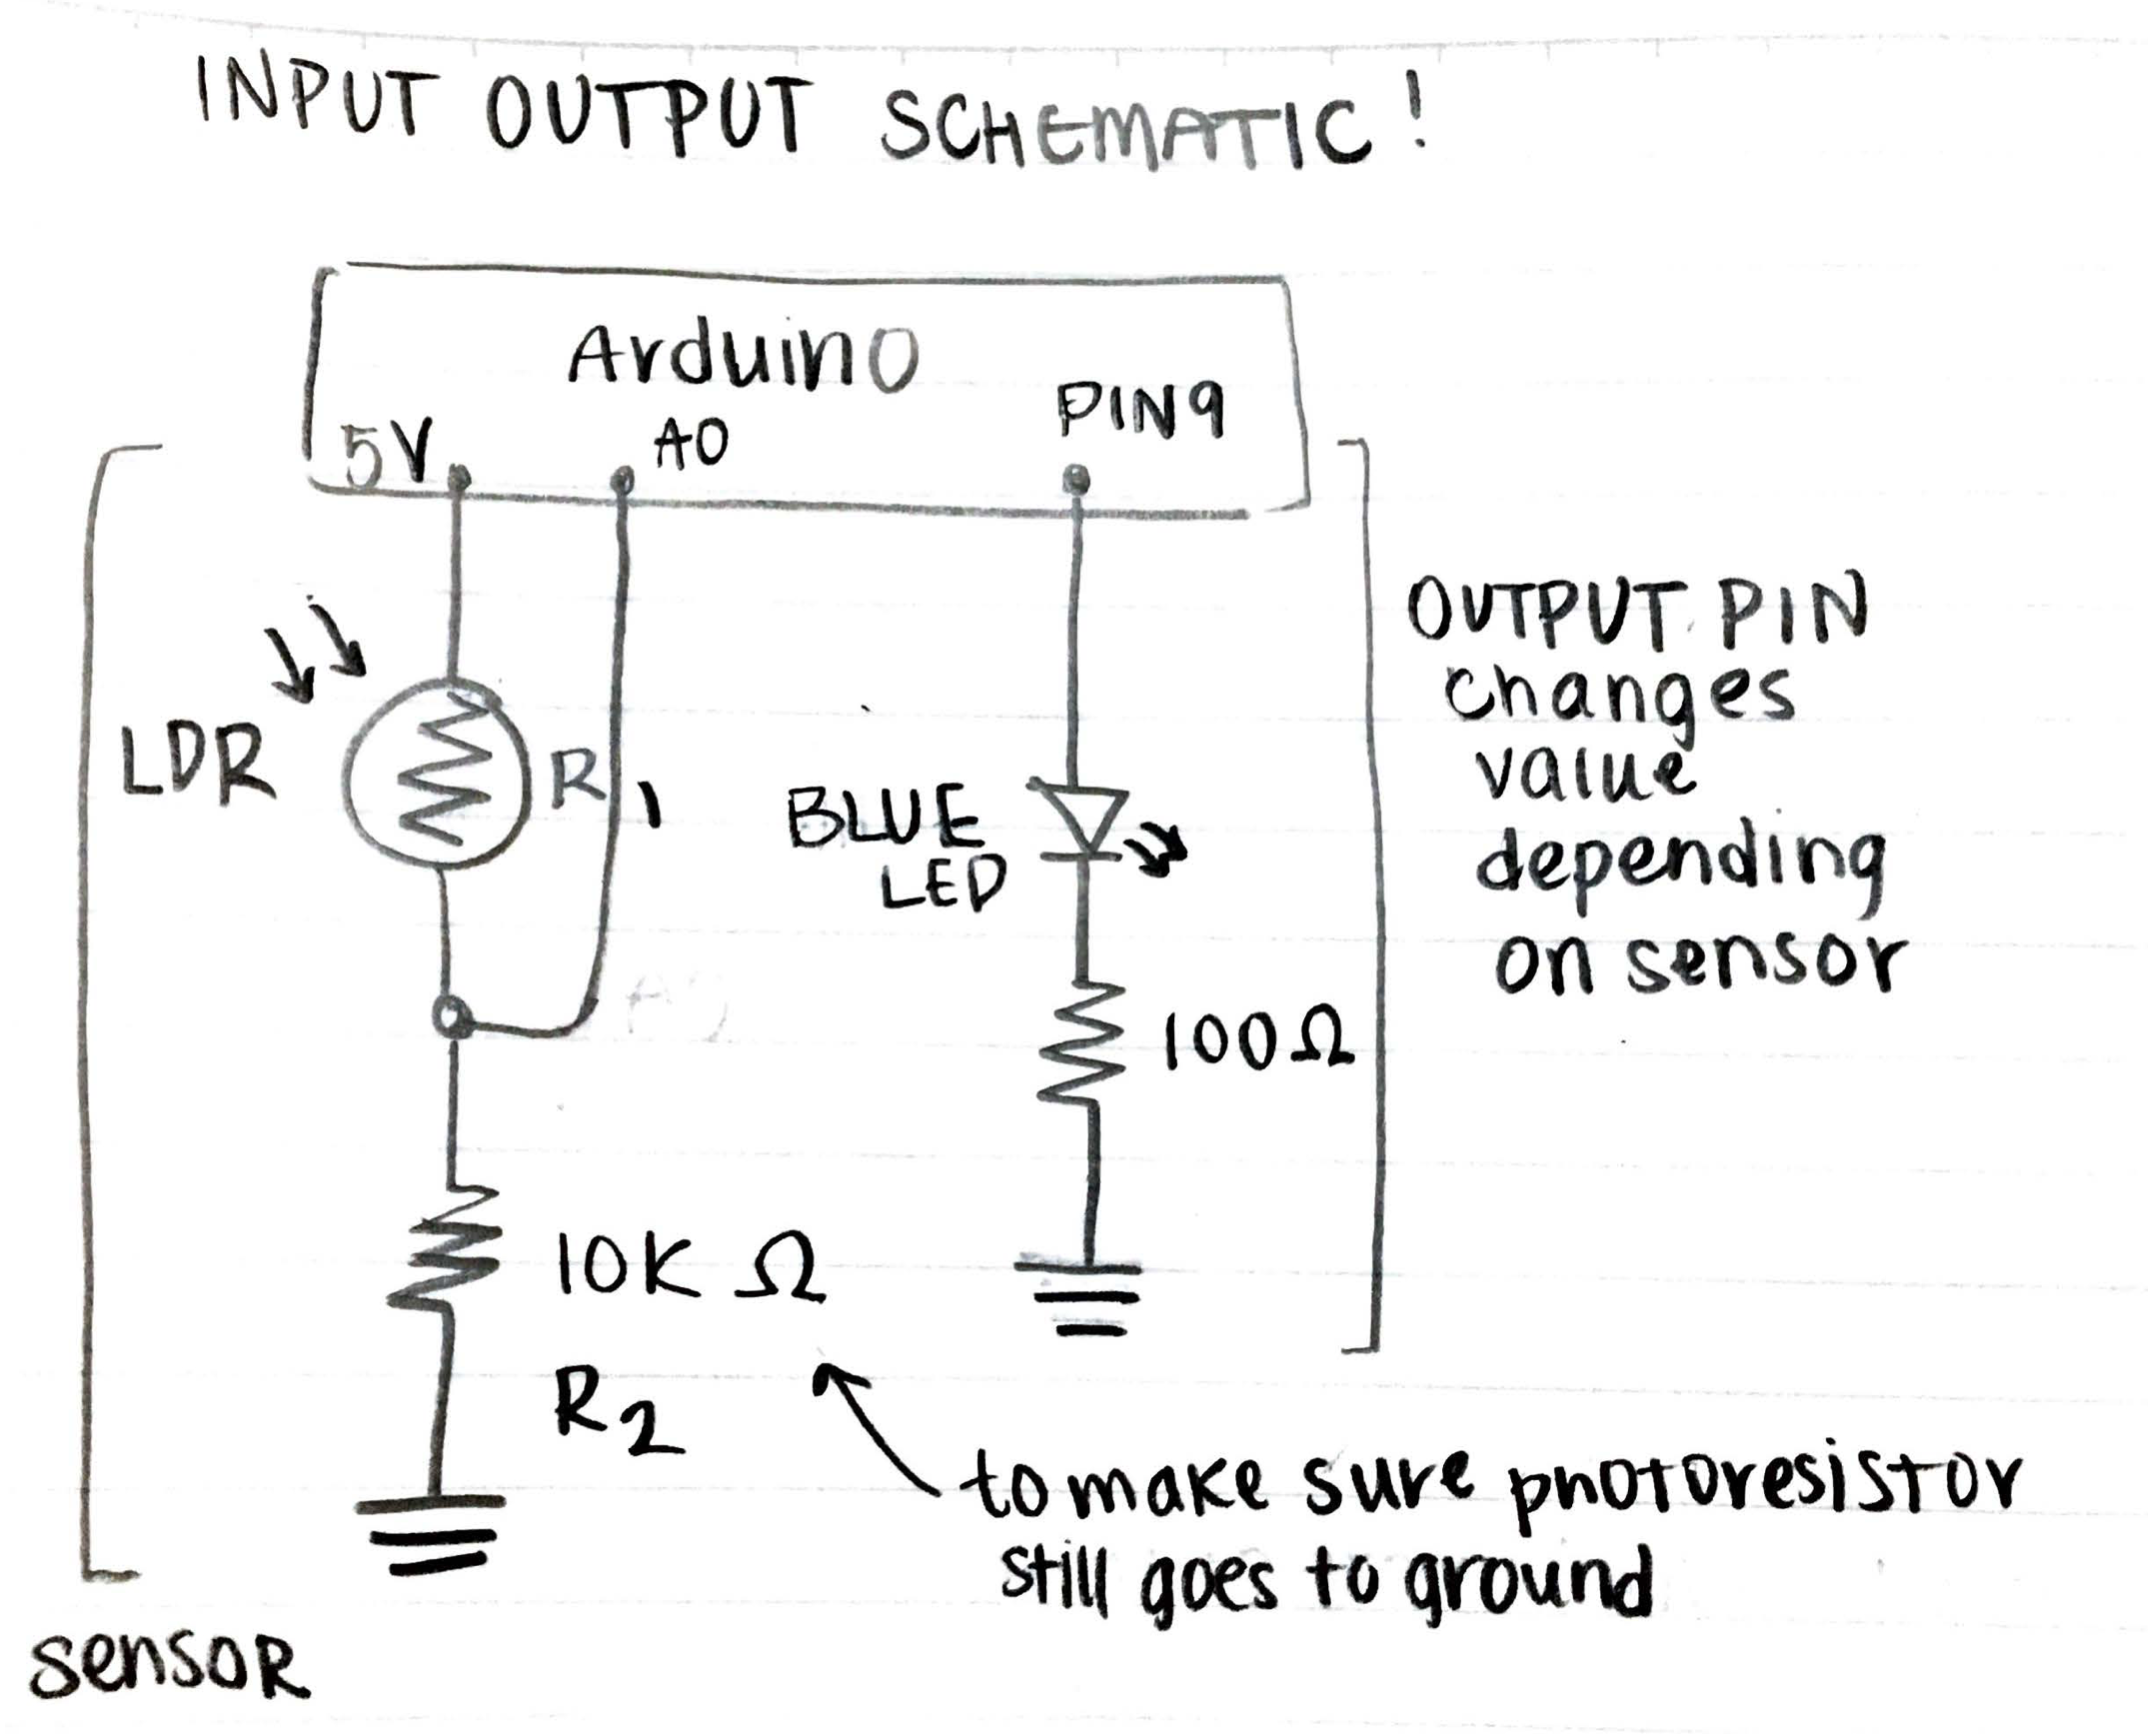 INPUT OUTPUT SCHEMATIC!
Arduino
5V
A0
PIN9
LDR
R1
BLUE
LED
100Ω
10K Ω
R2
OUTPUT PIN
changes
value
depending
on sensor
to make sure photoresistor
still goes to ground
sensoR